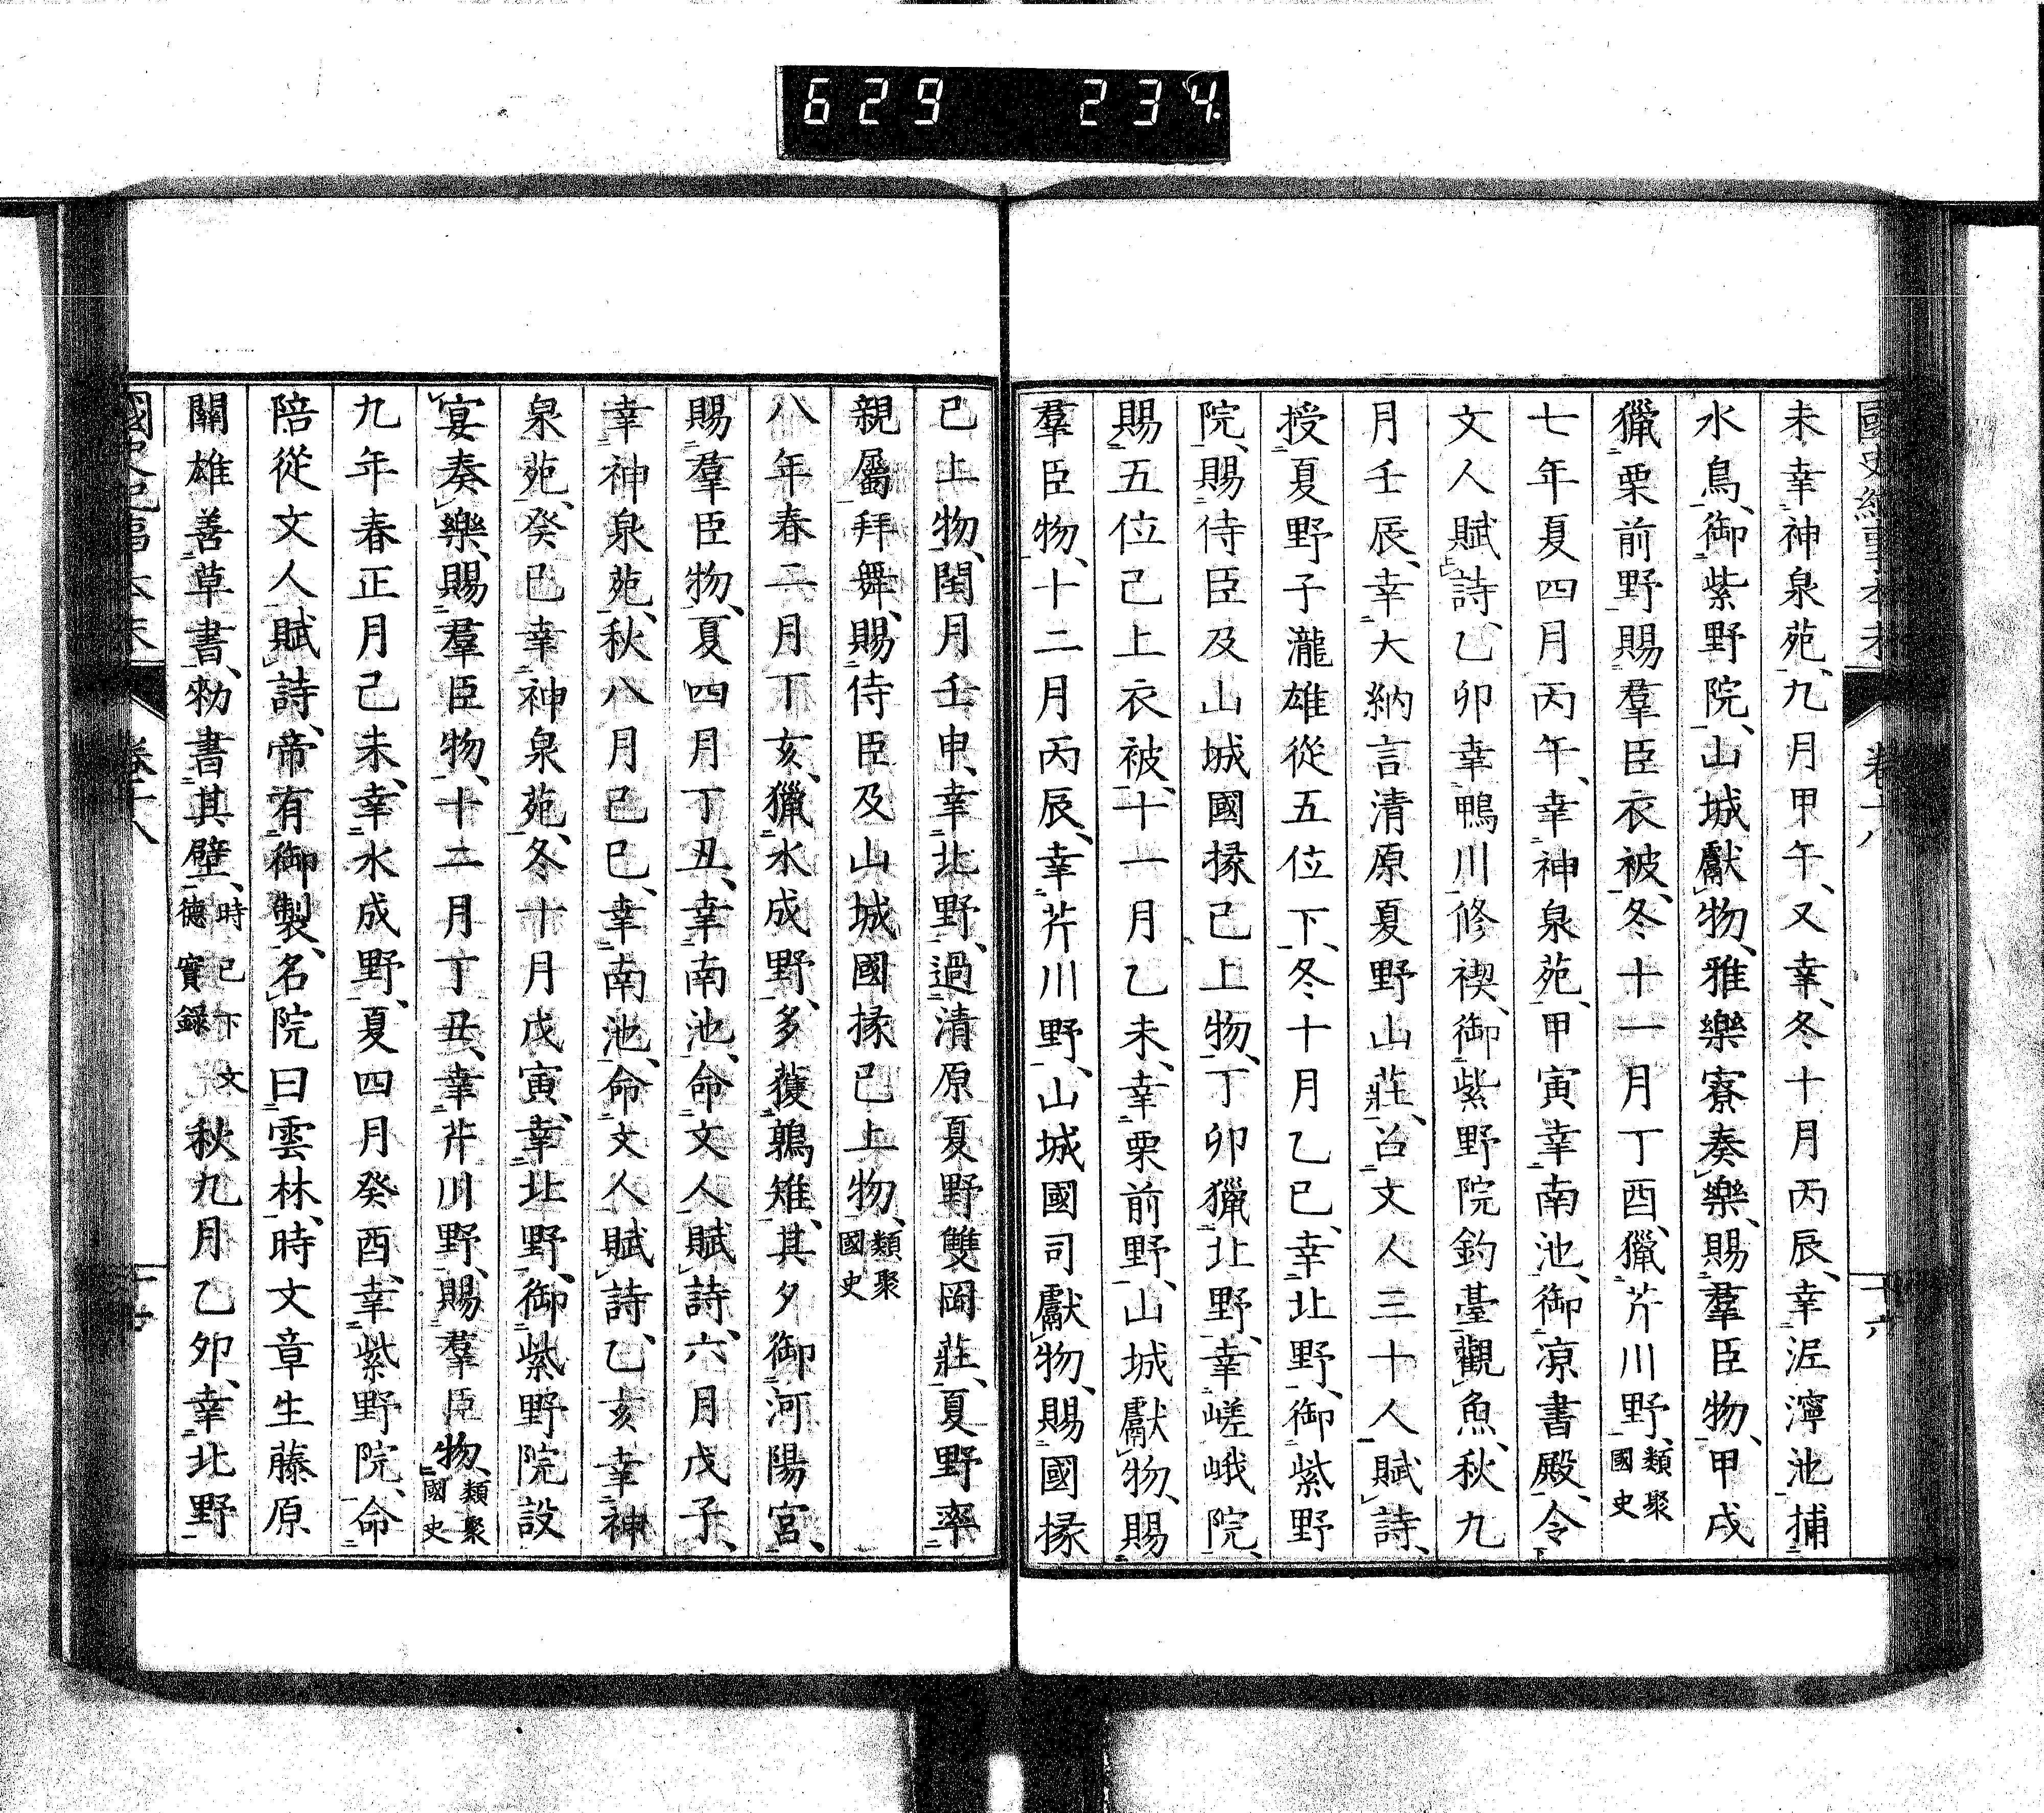 629 234
國史紀事本末 卷十八 十六
未幸神泉苑、九月甲午、又幸、冬十月丙辰、幸泥濘池捕
水鳥、御紫野院、山城獻物、雅樂寮奏樂、賜羣臣物、甲戌
獵栗前野、賜羣臣衣被、冬十一月丁酉、獵芹川野、類聚國史
七年夏四月丙午、幸神泉苑、甲寅幸南池、御凉書殿、令
文人賦詩、乙卯幸鴨川修禊、御紫野院釣臺觀魚、秋九
月壬辰、幸大納言清原夏野山莊、召文人三十人賦詩、
授夏野子瀧雄從五位下、冬十月乙巳、幸北野、御紫野
院、賜侍臣及山城國掾已上物、丁卯獵北野、幸嵯峨院、
賜五位已上衣被、十一月乙未、幸栗前野、山城獻物、賜
羣臣物、十二月丙辰、幸芹川野、山城國司獻物、賜國掾
已上物、閏月壬申、幸北野、過清原夏野雙岡莊、夏野率
親屬拜舞、賜侍臣及山城國掾已上物、類聚國史
八年春二月丁亥、獵水成野、多獲鶉雉、其夕御河陽宮、
賜羣臣物、夏四月丁丑、幸南池、命文人賦詩、六月戊子、
幸神泉苑、秋八月己巳、幸南池、命文人賦詩、乙亥幸神
泉苑、癸巳幸神泉苑、冬十月戊寅、幸北野、御紫野院設
宴奏樂、賜羣臣物、十二月丁丑、幸芹川野、賜羣臣物、類聚國史
九年春正月己未、幸水成野、夏四月癸酉、幸紫野院、命
陪從文人賦詩、帝有御製、名院曰雲林、時文章生藤原
關雄善草書、勑書其壁、時已下文德實錄 秋九月乙卯、幸北野
國史紀事本末 卷十八